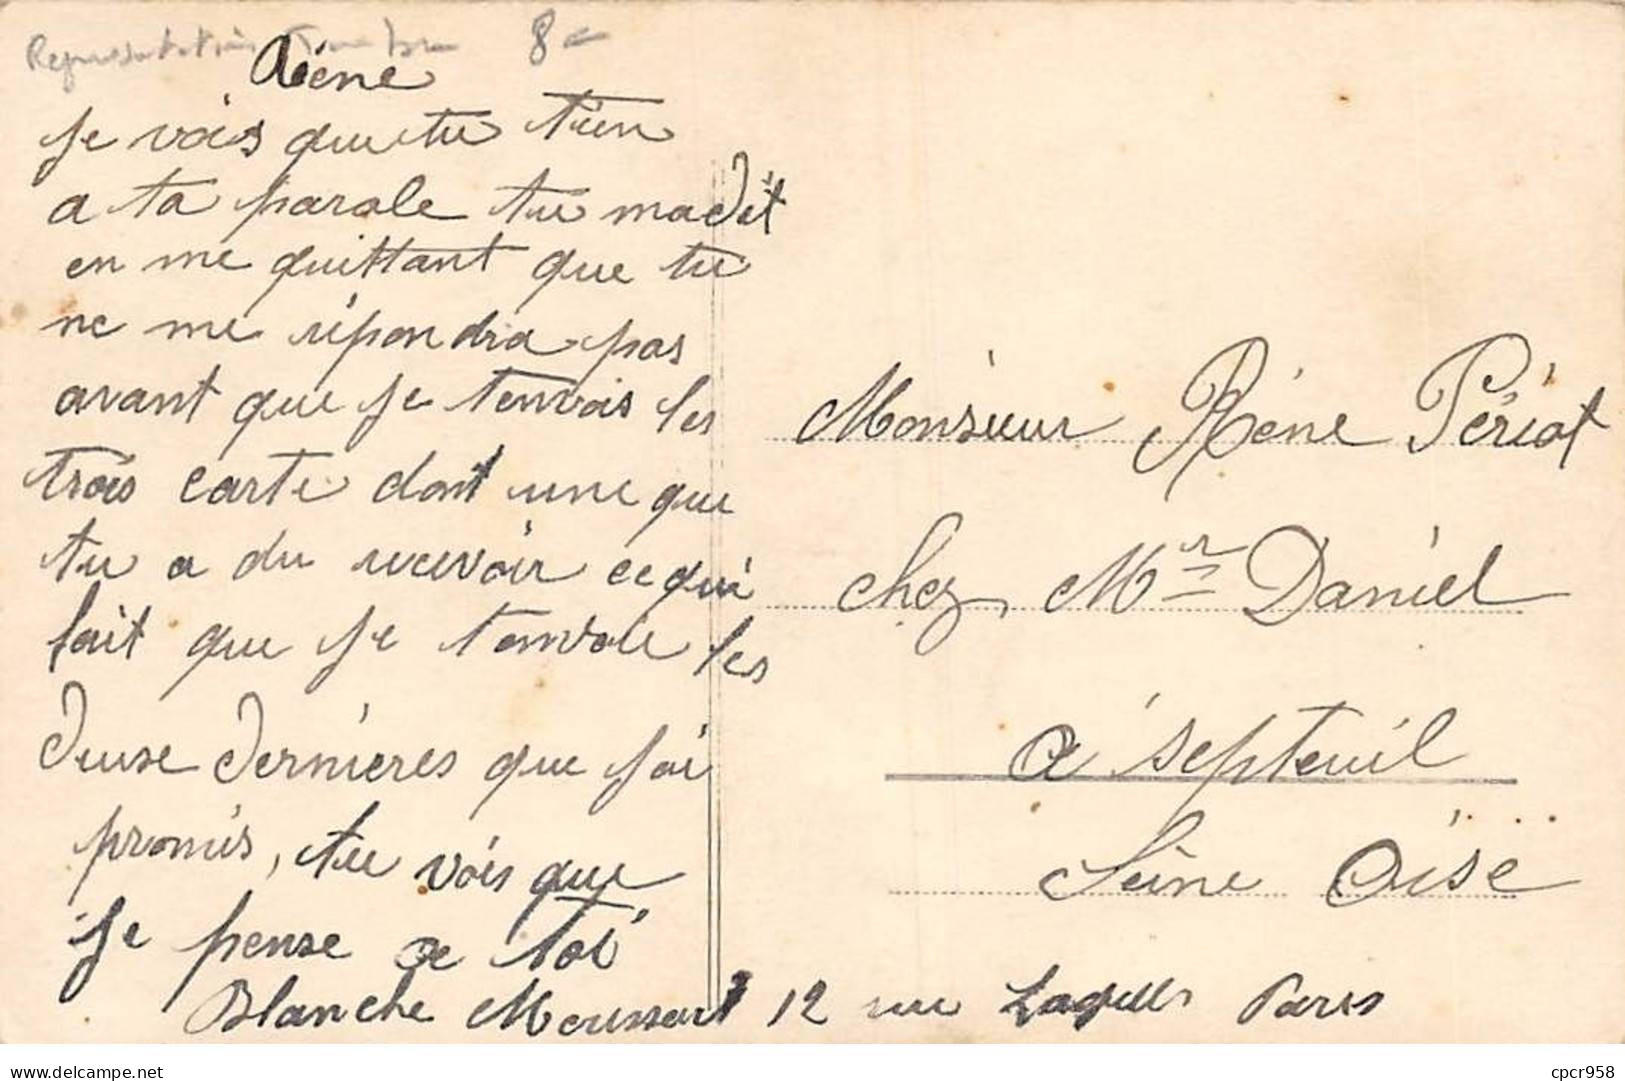 Représentation Timbre 8 -
Réne
Je vois que tu tien
a ta parole tu ma dit
en me quittant que tu
ne me répondra pas
avant que je tenvois les
trois carte dont une que
tu a du recevoir ce qui
fait que je tenvoie les
deuse dernières que j'ai
promis, tu vois que
je pense a toi
Blanche Moussart 12 rue Paris
Monsieur Réne Périot
chez Mr Daniel
a Septeuil
Seine Oise
cpcr958